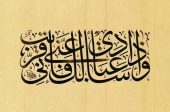 وإذا سألك عبادي عني فإني قريب